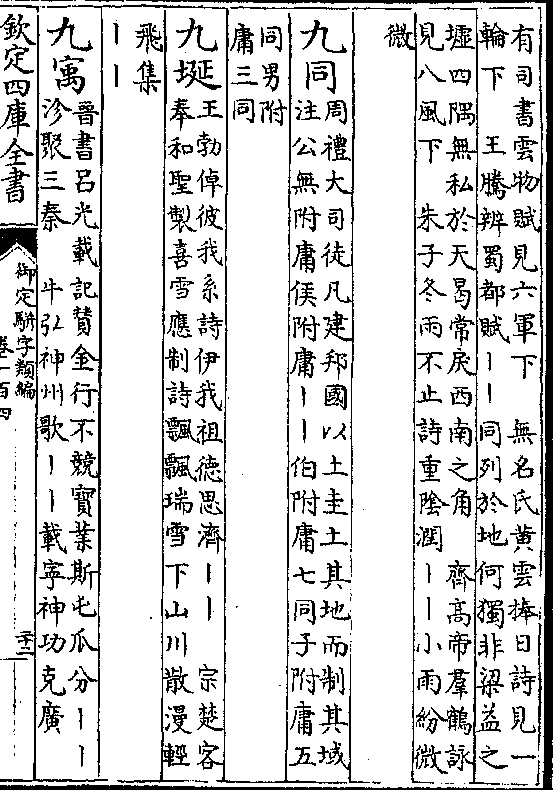 有司書雲物賦見六軍下　無名氏黄雲捧日詩見一
輪下　王騰辨蜀都賦丨丨同列於地何獨非梁益之
墟四隅無私於天曷常戾西南之角　齊高帝羣鶴詠
見八風下　朱子冬雨不止詩重陰潤丨丨小雨紛微
微
九同周禮大司徒凡建邦國以土圭土其地而制其域
注公無附庸侯附庸丨丨伯附庸七同子附庸五
同男附
庸三同
九埏王勃倬彼我系詩伊我祖德思濟丨丨　宗楚客
奉和聖製喜雪應制詩飄飄瑞雪下山川散漫輕
飛集
丨丨
九寓晉書呂光載記贊金行不競寶業斯屯瓜分丨丨
沴聚三秦　牛弘神州歌丨丨載寧神功克廣
欽定四庫全書
御定駢字類編
卷一百四
二十二